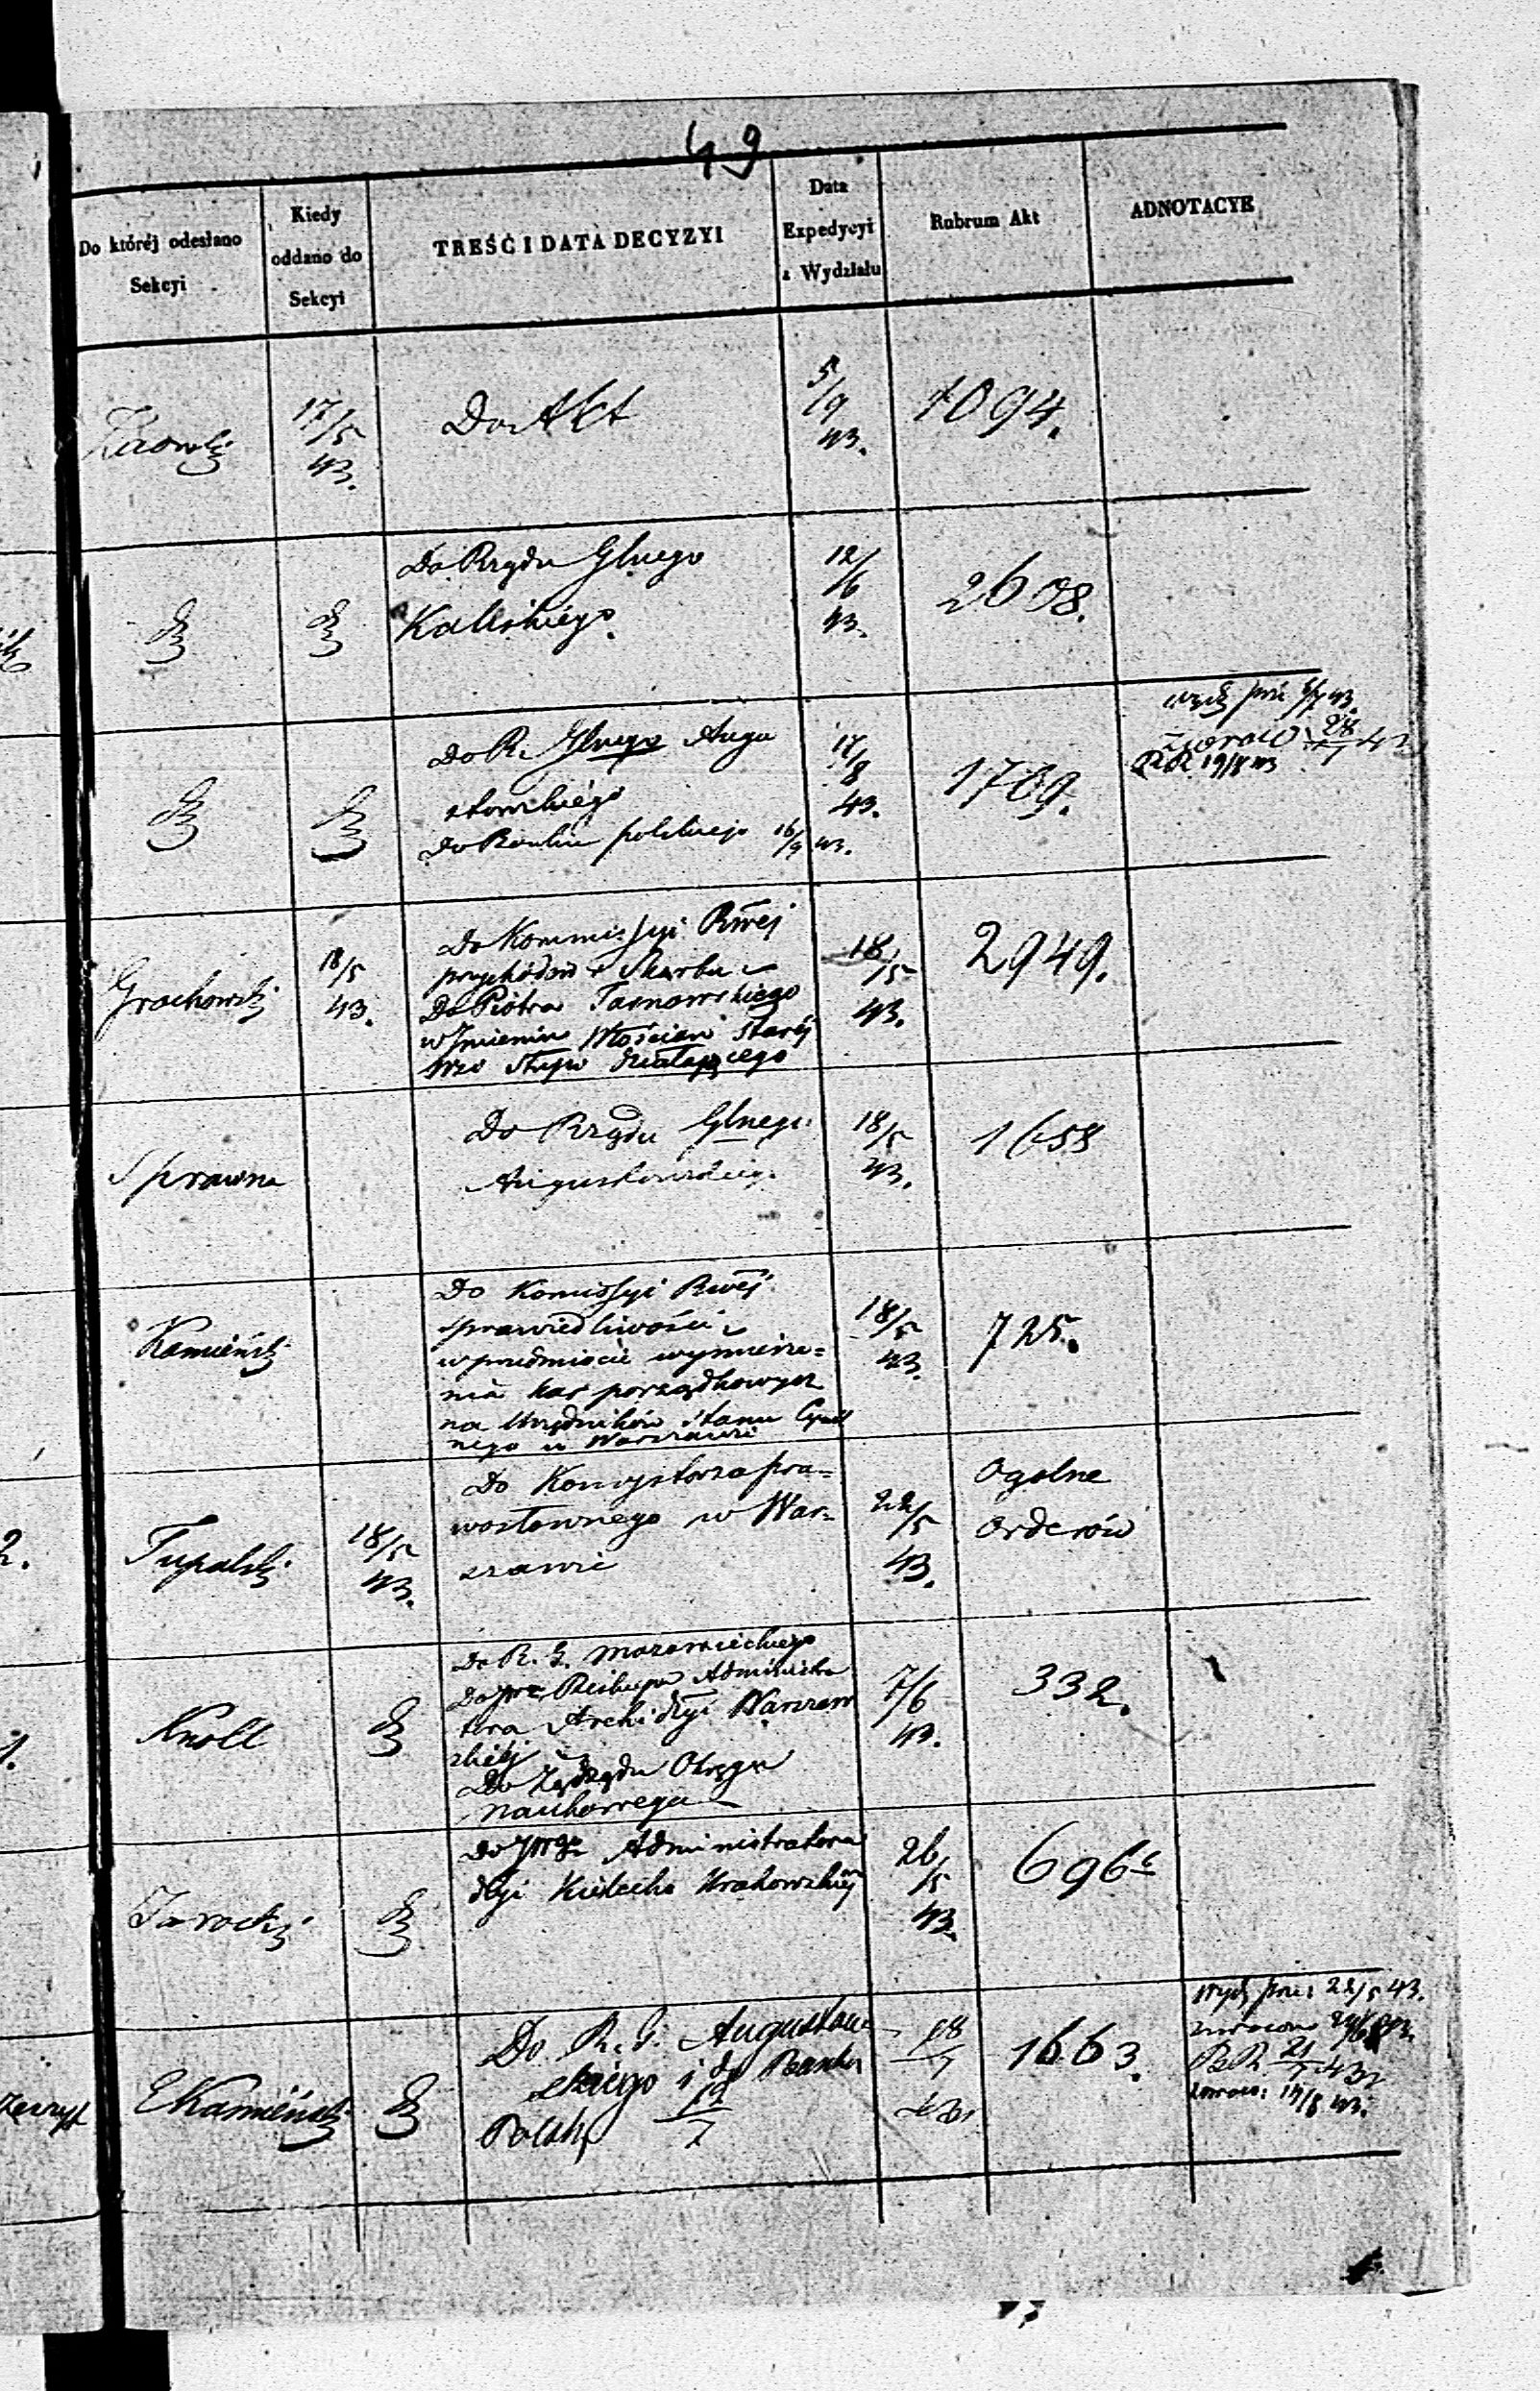 49
Do któréj odesłano
Sekcyi
Kiedy
oddano do
Sekcyi
TREŚĆ I DATA DECYZYI
Data
Expedycyi
z Wydziału
Rubrum Akt
ADNOTACYE
17/5
43.
Do Akt
5/9
43.
1094.
Do Rządu Glnego
Kaliskiégo.
12/6
43.
2608.
Do R. Glnego Augu
stowskiégo
Do Banku polskiego 16/9 43.
17/8
43.
1709.
19/8 43
Grochowski
18/5
43.
Do Kommissyi Rwéj
przychodów i Skarbu
Do Piotra Tarnowskiego
w Imieniu Włościan Staréj
wsi działającego
18/5
43.
2949.
Sprawna
Do Rządu Glnego
Augustowskieg.
18/5
43.
1658
Kamieński
Do Komissyi Rwéj
sprawiedliwości
w przedmiocie wymierze=
nia kar porządkowych
na Urzędników Stanu Cywil
nego w Warszawie
18/5
43.
725.
Tupalski
18/5
43.
Do Konsystorza pra=
wosławnego w War=
szawie
22/5
43.
Ogolne
Orderów
Knoll
Do R. G. Mazowieckiego
Do Biskupa Administra
tora Archidyi Warszaw
skiéj
Do Okręgu
Naukowego
7/6
43.
332.
Jarocki
Do Administratora
dyi Kielecko Krakowskiéj
26/5
43.
696
Kamieński
Do R. G. Augustow
skiego i do Banku
Polsk
18/7
43
1663.
22/5 43.
21/7 43
14/8 43.